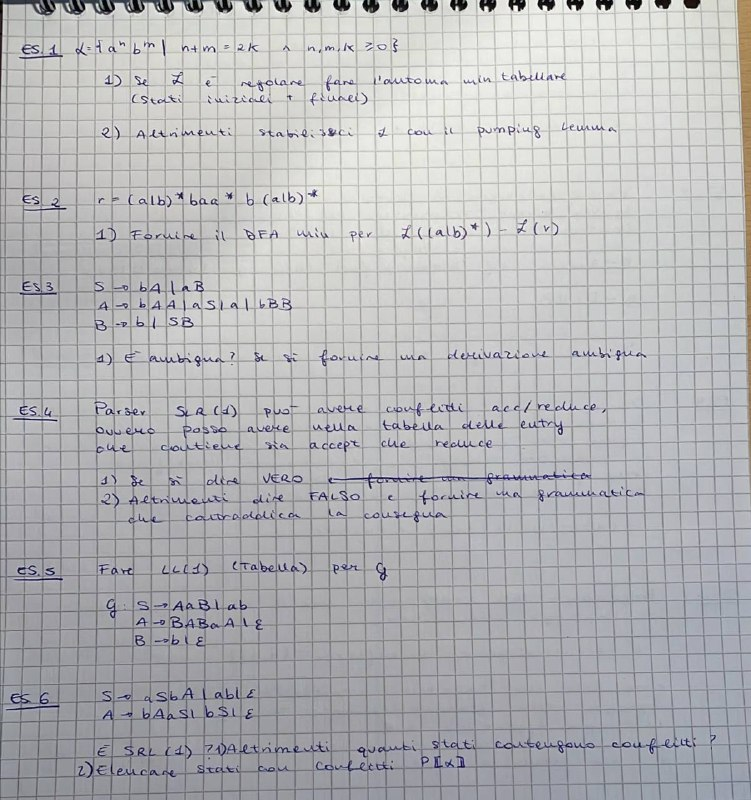 ES.1 L = { aⁿ bᵐ | n+m = 2k ∧ n,m,k ≥ 0 }
1) Se L è regolare fare l'automa min tabellare
(stati iniziali + finali)
2) Altrimenti stabilisci L con il pumping lemma
ES. 2 r = (a|b)* baa* b (a|b)*
1) Fornire il DFA min per L((a|b)*) - L(r)
ES3 S → bA | aB
A → bAA | aS | a | bBB
B → b | SB
1) È ambigua? Se sì fornire una derivazione ambigua
ES.4 Parser SLR(1) può avere conflitti acc/reduce,
ovvero posso avere nella tabella delle entry
che contiene sia accept che reduce
1) Se sì dire VERO e fornire una grammatica
2) Altrimenti dire FALSO e fornire una grammatica
che contraddica la consegna
ES.5 Fare LL(1) (Tabella) per G
G: S → AaB | ab
A → BABaA | ε
B → b | ε
ES 6 S → aSbA | ab | ε
A → bAaS | bS | ε
È SRL(1) ? 1) Altrimenti quanti stati contengono conflitti ?
2) Elencare stati con conflitti P⟦α⟧